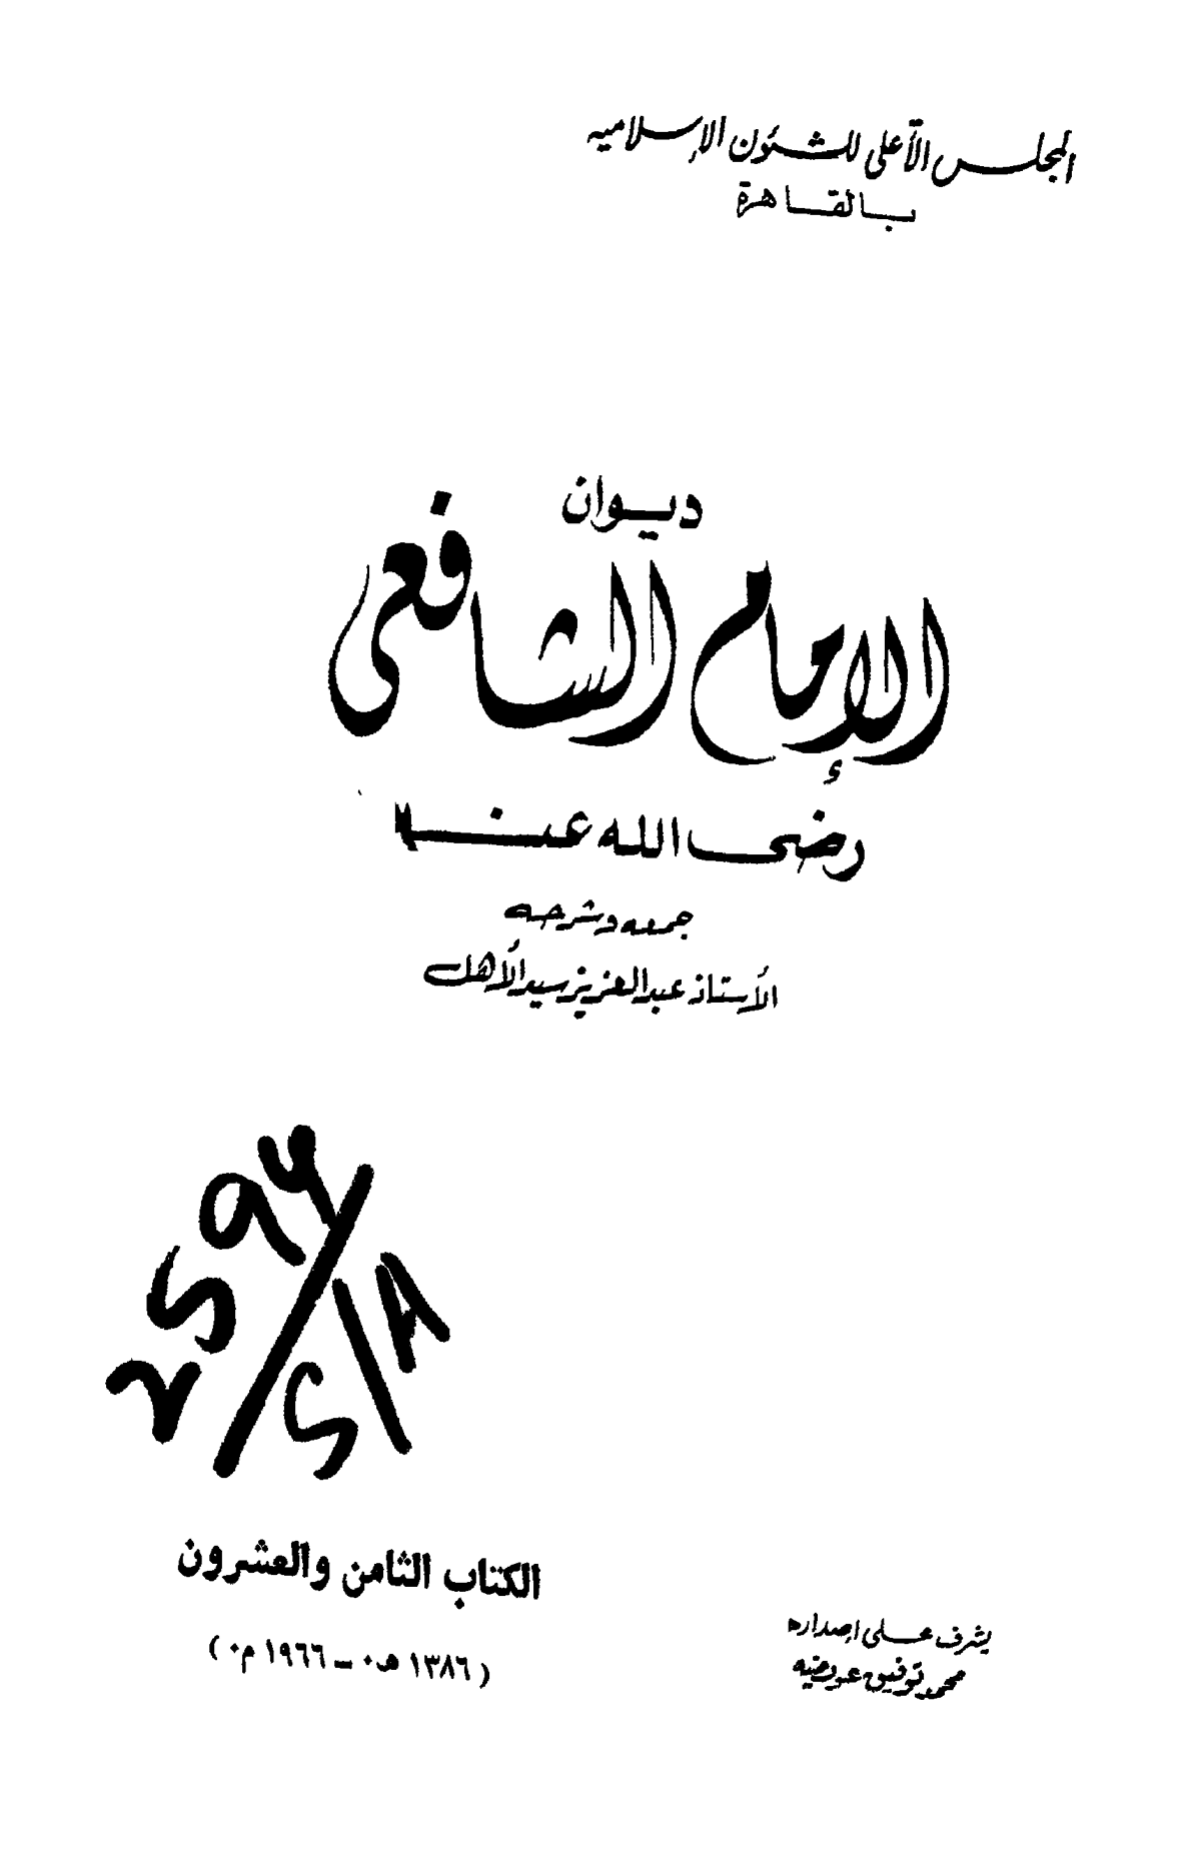 المجلس الأعلى للشئون الإسلامية
بالقاهرة
ديوان
الإمام الشافعى
رضى الله عنه
جمعه وشرحه
الأستاذ عبد العزيز سيد الأهل
الكتاب الثامن والعشرون
( ١٣٨٦ هـ٠ ــ ١٩٦٦ م٠ )
يشرف على إصداره
محمد توفيق عويضة